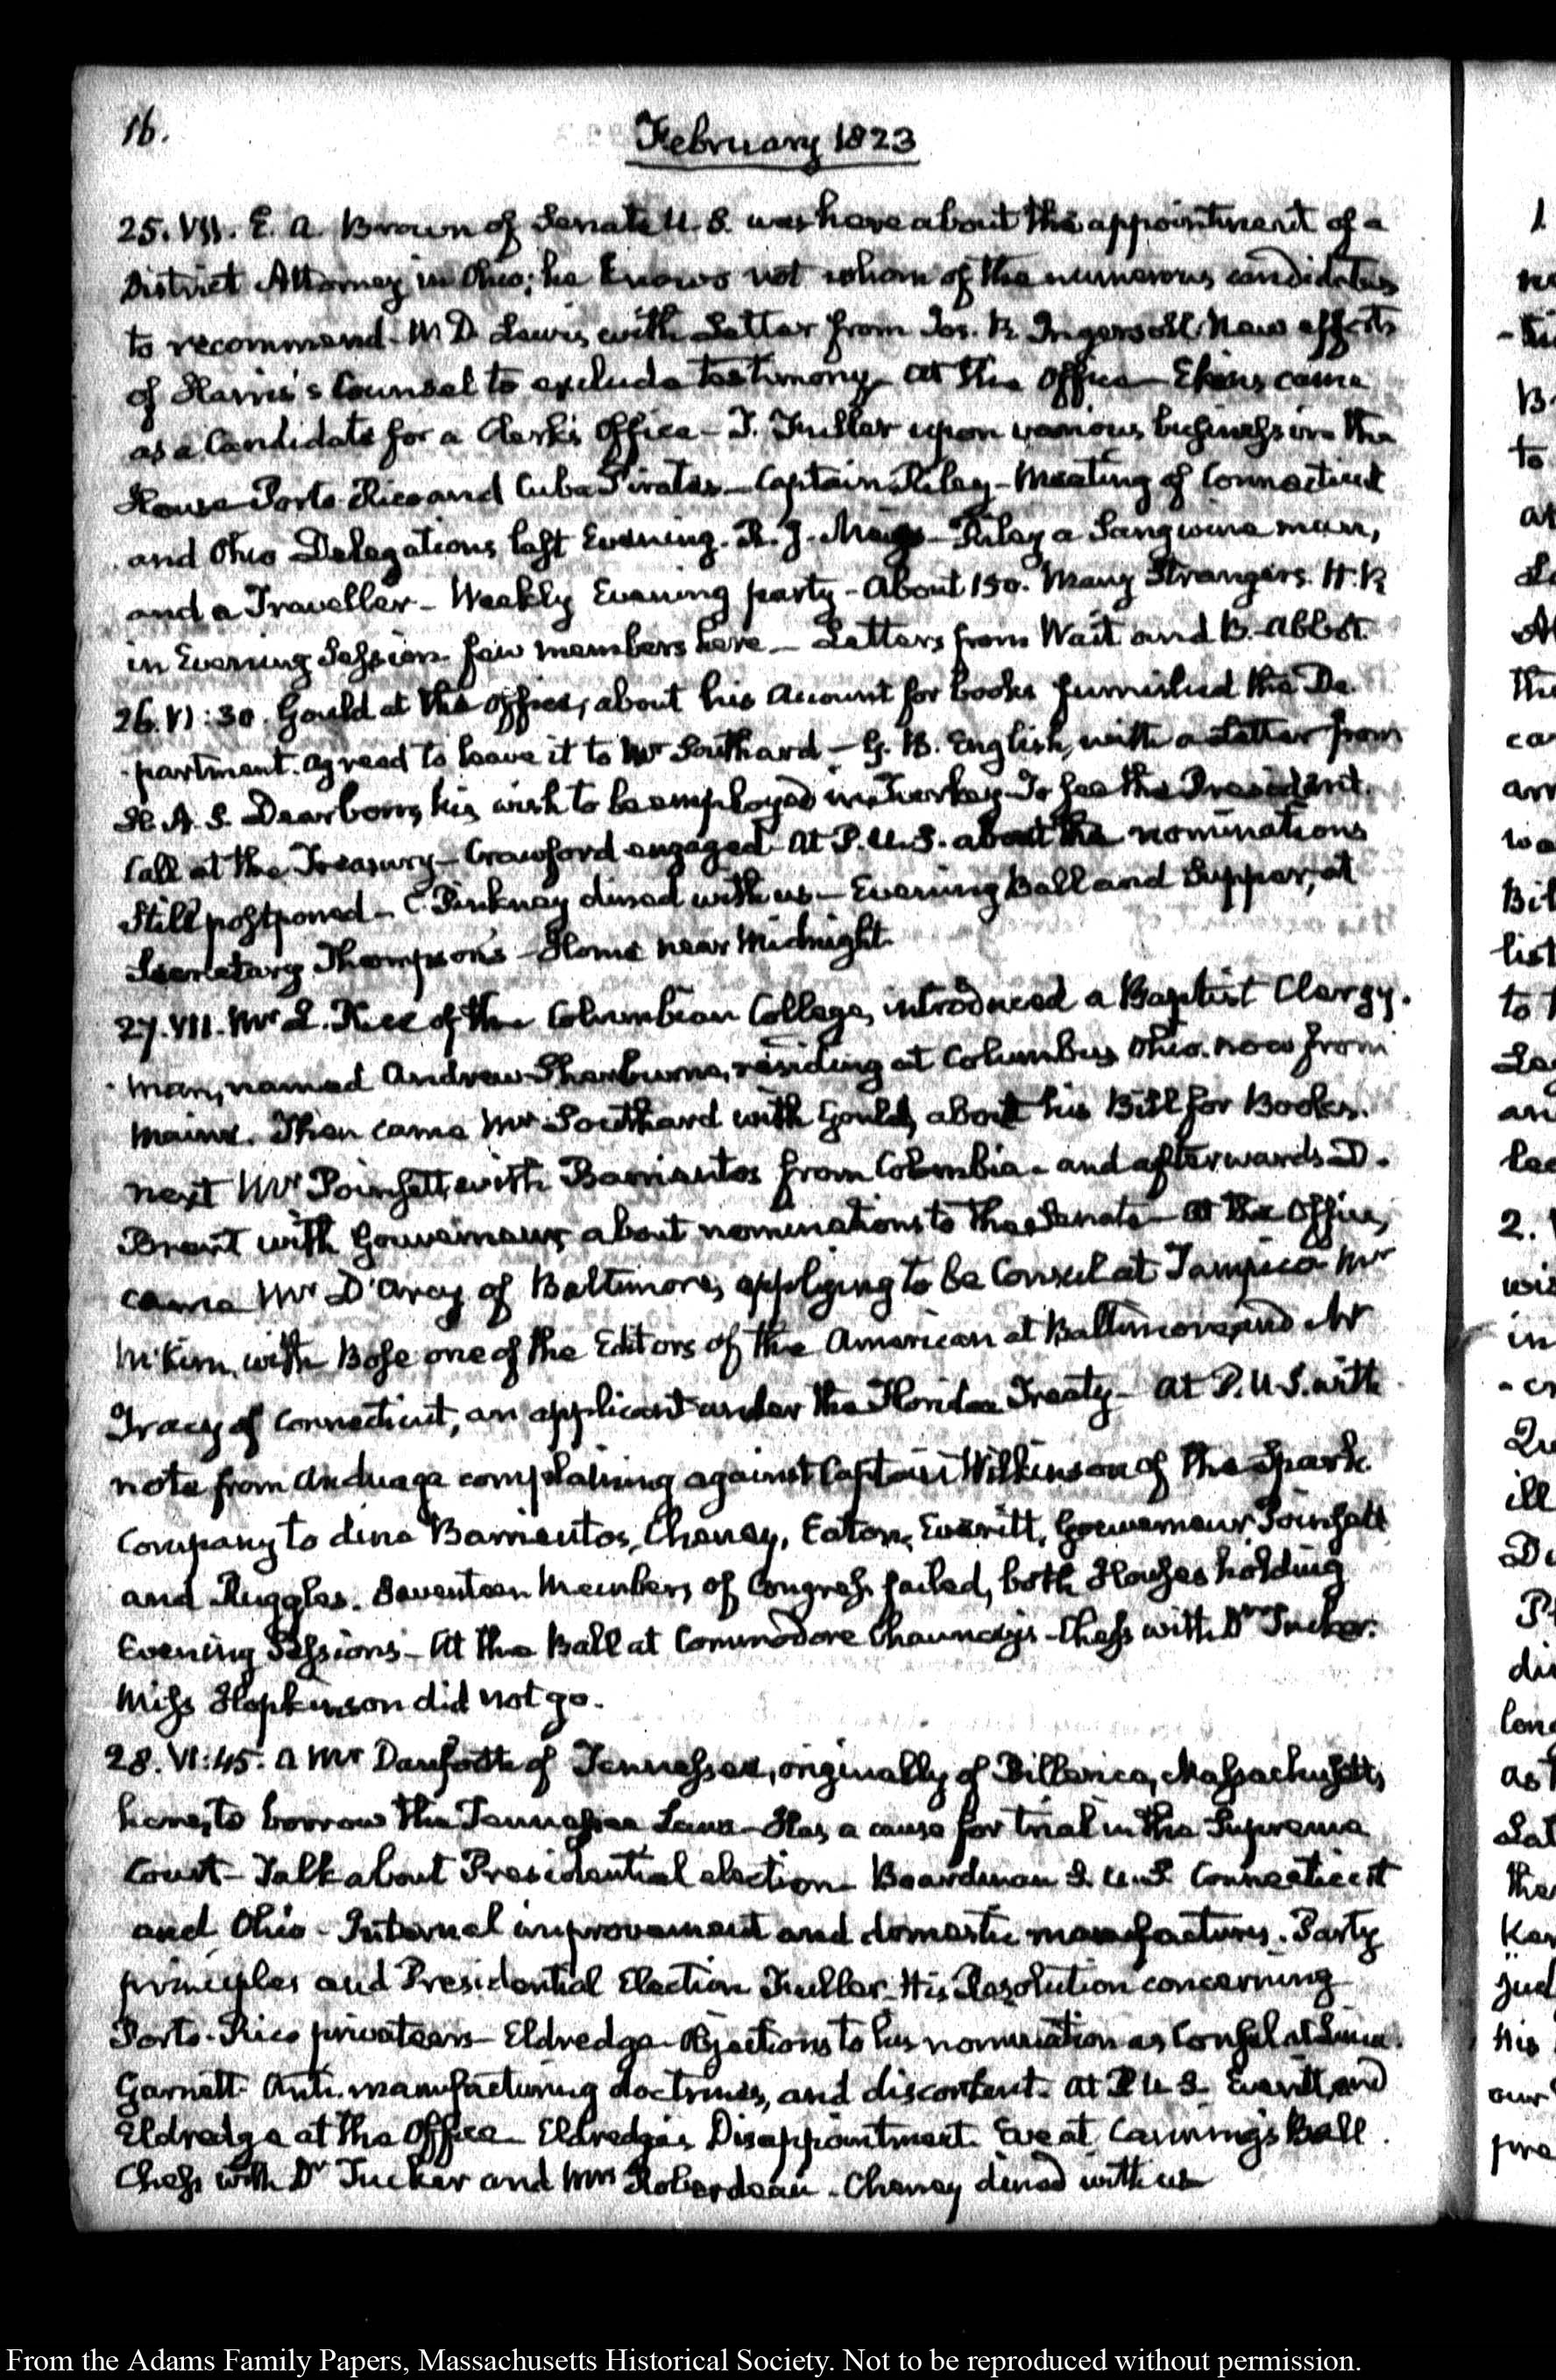 16.
February 1823
25. VII. E. A. Brown of Senate U.S. was here about the appointment of a
District Attorney in Ohio; he knows not whom of the numerous candidates
to recommend. M D Lewis, with Letter from Jos. R. Ingersoll. New efforts
of Harris's Counsel to exclude testimony. At the Office— Ekins came
as a Candidate for a Clerk's Office— T. Fuller upon various business in the
House Porto-Rico and Cuba Pirates— Captain Riley— Meeting of Connecticut
and Ohio Delegations last Evening. R. J. Meigs— Riley a Sanguine man,
and a Traveller— Weekly Evening party— About 150. Many Strangers. H.R
in Evening Session. few members here— Letters from Wait and B. Abbot.
26. VI:30. Gould at the Office, about his Account for books furnished the De
-partment. Agreed to leave it to Mr Southard— G. B. English, with a Letter from
H. A. S. Dearborn, his wish to be employed in Turkey. To see the President.
Call at the Treasury— Crawford engaged. At P.U.S. about the nominations
Still postponed— C Pinkney dined with us— Evening Ball and Supper, at
Secretary Thompson's— Home near Midnight.
27. VII. Mr L. Rice of the Columbian College, introduced a Baptist Clergy-
-man, named Andrew Sherburne, residing at Columbus Ohio. now from
Maine. Then came Mr Southard with Gould, about his Bill for Books.
next Mr Poinsett, with Barrientos from Colombia— and afterwards D.
Brent with Gouverneur, about nominations to the Senate— At the Office,
came Mr D'Arcy of Baltimore, applying to be Consul at Tampico. Mr
McKim, with Bose one of the Editors of the American at Baltimore, and Mr
Tracy of Connecticut, an applicant under the Florida Treaty— At P.U.S. with
note from Anduaga complaining against Captain Wilkinson of the Spark.
Company to dine Barrientos, Cheney, Eaton, Everett, Gouverneur, Poinsett
and Ruggles. Seventeen Members of Congress failed, both Houses holding
Evening Sessions— At the Ball at Commodore Chauncey's— Chess with Dr Tucker.
Miss Hopkinson did not go.
28. VI:45. A Mr Danforth of Tennessee, originally of Billerica, Massachusetts,
here, to borrow the Tennessee Laws— Has a cause for trial in the Supreme
Court— Talk about Presidential election— Boardman S. U.S. Connecticut
and Ohio— Internal improvement and domestic manufactures. Party
principles and Presidential Election. Fuller. His Resolution concerning
Porto-Rico privateers— Eldredge— Objections to his nomination as Consul at Lima.
Garnett. Anti-manufacturing doctrines, and discontent. At P.U.S. Everett, and
Eldredge at the Office— Eldredge's Disappointment. Eve at Canning's Ball.
Chess with Dr Tucker and Mrs Roberdeau. Cheney dined with us
From the Adams Family Papers, Massachusetts Historical Society. Not to be reproduced without permission.